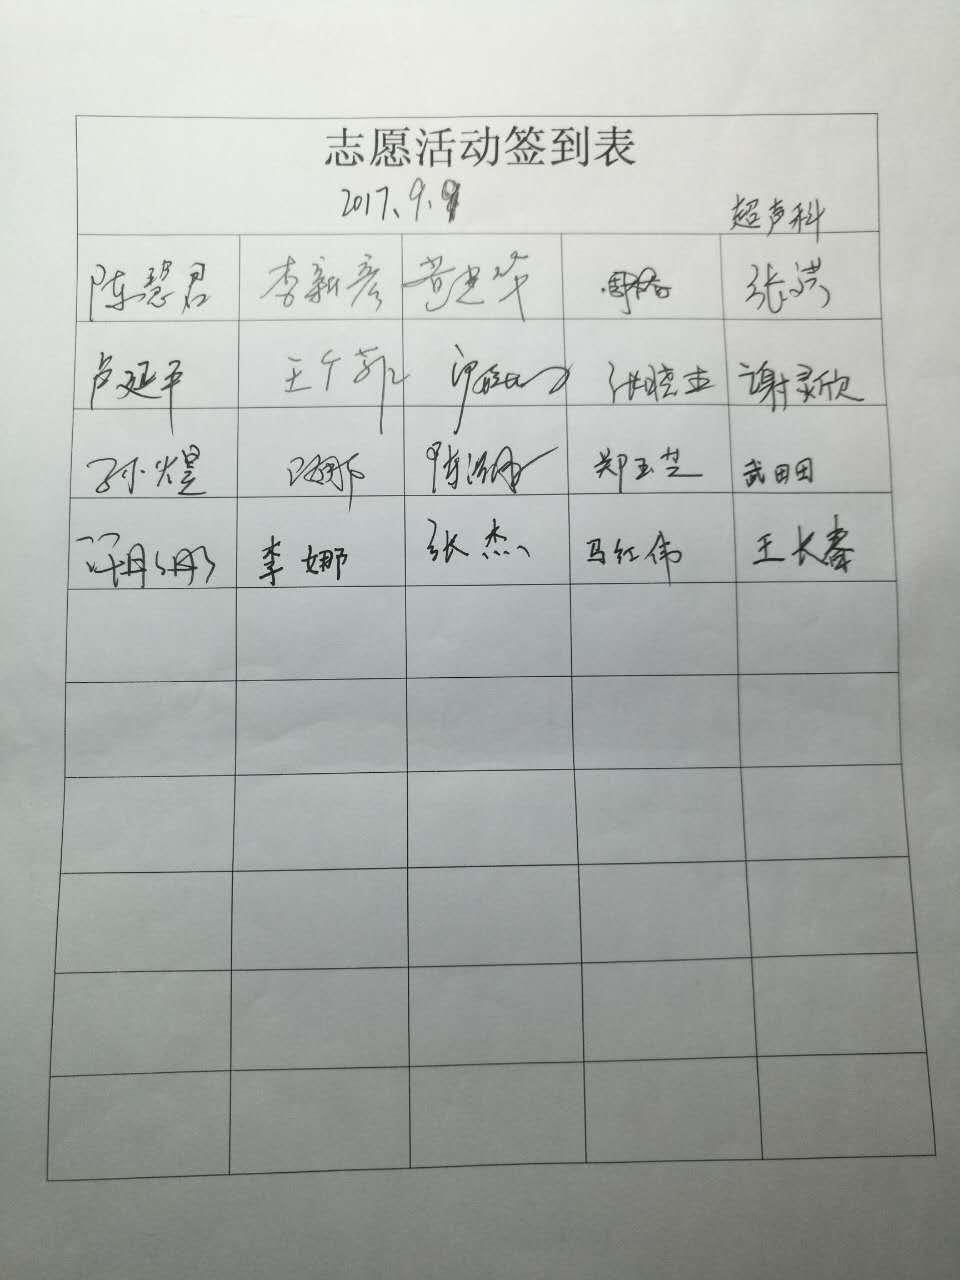 志愿活动签到表
2017.9.9
超声科
陈慧君 李新彦 黄建华 张洪
卢延平 王个菲 张晓杰 谢灵欣
孙煜 郑玉芝 武田田
李娜 张杰 马红伟 王长春